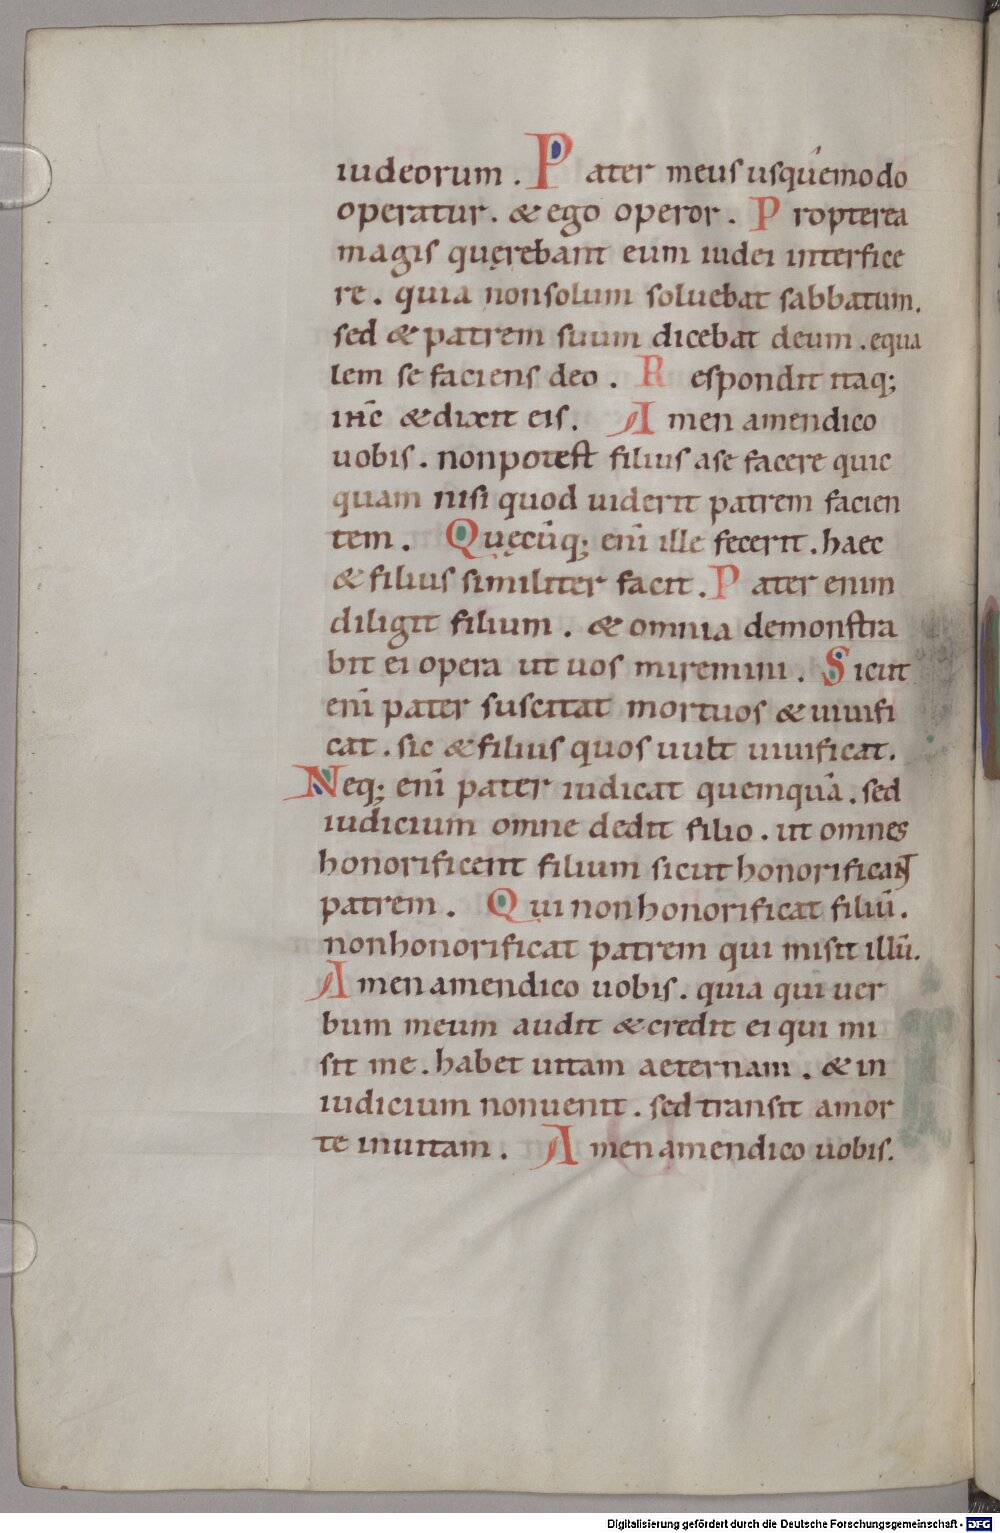 iudeorum. Pater meus usq́uemodo
operatur. & ego operor. Propterea
magis quęrebant eum iudei interfice
re. quia nonsolum soluebat sabbatum.
sed & patrem suum dicebat deum. equa
lem se faciens deo. Respondit itaq;
ihc̄ & dixit eis. Amen amendico
uobis. nonpotest filius ase facere quic
quam nisi quod uiderit patrem facien
tem. Quęcūq; enī ille fecerit. haec
& filius similiter facit. Pater enim
diligit filium. & omnia demonstra
bit ei opera ut uos miremini. Sicut
enī pater suscitat mortuos & uiuifi
cat. sic & filius quos uult uiuificat.
Neq; enī pater iudicat quemquā. sed
iudicium omne dedit filio. ut omnes
honorificent filium sicut honorificant
patrem. Qui nonhonorificat filiū.
nonhonorificat patrem qui misit illū.
Amen amendico uobis. quia qui uer
bum meum audit & credit ei qui mi
sit me. habet uitam aeternam. & in
iudicium nonuenit. sed transit amor
te inuitam. Amen amendico uobis.
Digitalisierung gefördert durch die Deutsche Forschungsgemeinschaft - DFG